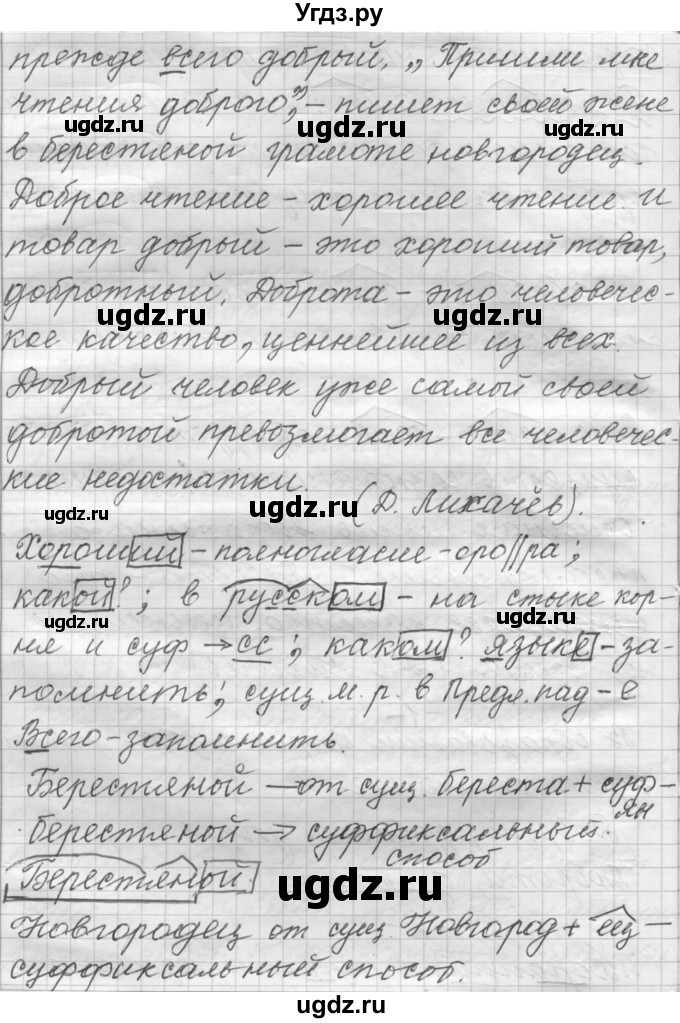 Угдз.ру
прежде всего добрый. „Пришли мне
чтения доброго”, – пишет своей жене
ugdz.ru ugdz.ru ugdz.ru
в берестяной грамоте новгородец.
Доброе чтение – хорошее чтение. И
товар добрый – это хороший товар,
добротный. Доброта – это человечес-
ugdz.ru ugdz.ru
кое качество, ценнейшее из всех.
Добрый человек уже самой своей
добротой превозмогает все человечес-
кие недостатки.
ugdz.ru ugdz.ru ugdz.ru
(Д. Лихачёв).
Хороший – полногласие – оро||ра;
какой?; в русском – на стыке кор-
ugdz.ru ugdz.ru
ня и суф → сс; каком? языке – за-
помнить; сущ. м. р. в Предл. пад – е
Всего – запомнить.
Берестяной – от сущ. береста + суф –
ян
берестяной → суффиксальный
способ
ugdz.ru ugdz.ru ugdz.ru
Берестяной.
Новгородец от сущ Новгород + ец –
суффиксальный способ.
ugdz.ru